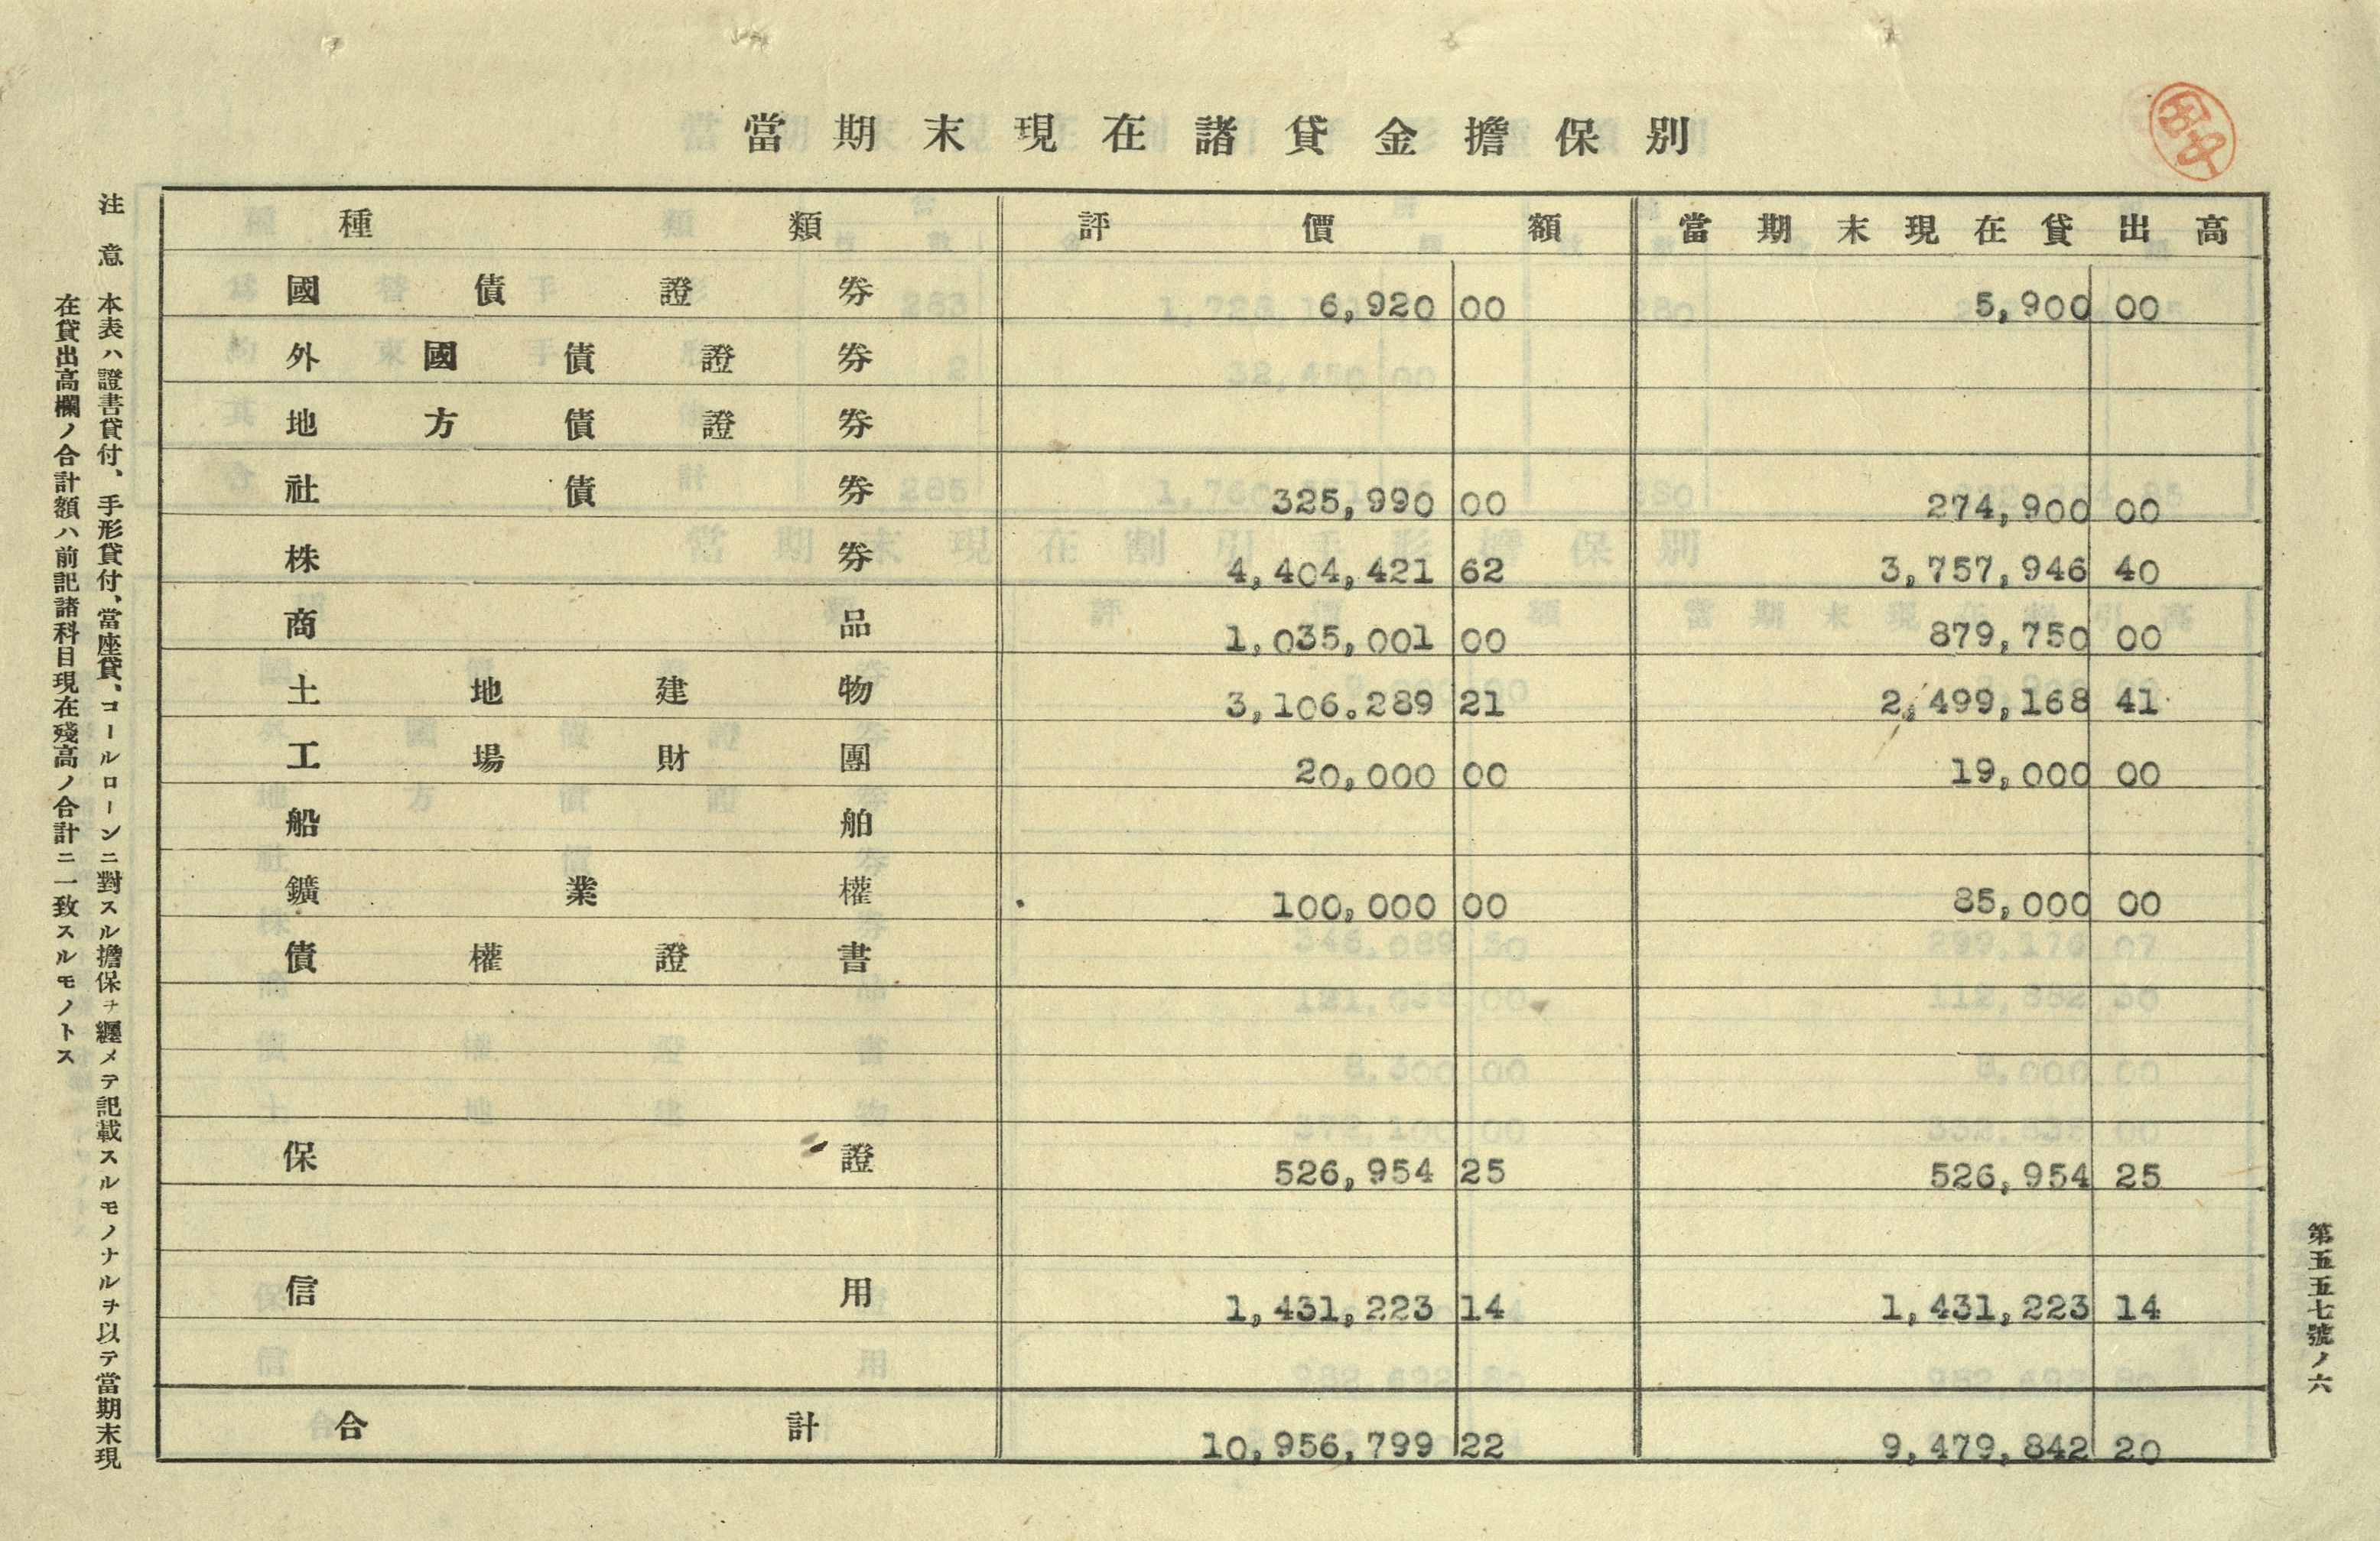 當期末現在諸貸金擔保別
種類 評價額 當期末現在貸出高
國債證券 6,920 00 5,900 00
外國債證券
地方債證券
社債券 325,990 00 274,900 00
株券 4,404,421 62 3,757,946 40
商品 1,035,001 00 879,750 00
土地建物 3,106.289 21 2,499,168 41
工場財團 20,000 00 19,000 00
船舶
鑛業權 100,000 00 85,000 00
債權證書
保證 526,954 25 526,954 25
信用 1,431,223 14 1,431,223 14
合計 10,956,799 22 9,479,842 20
第五五七號ノ六
注意 本表ハ證書貸付、手形貸付、當座貸、コールローンニ對スル擔保ヲ纒メテ記載スルモノナルヲ以テ當期末現
在貸出高欄ノ合計額ハ前記諸科目現在殘高ノ合計ニ一致スルモノトス